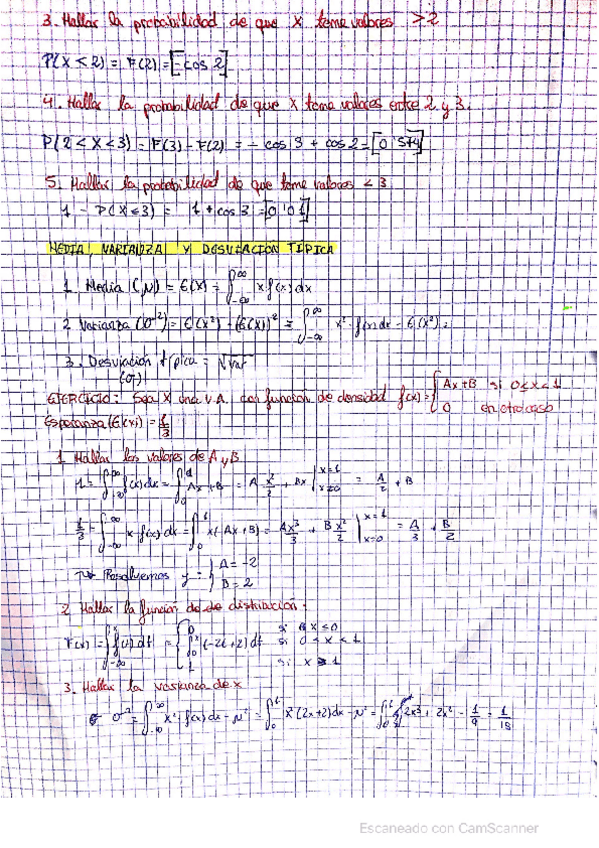 3. Hallar la probabilidad de que X tome valores >2
P(X < 2) = F(2) = [-cos 2]
4. Hallar la probabilidad de que X tome valores entre 2 y 3.
P(2 < X < 3) = F(3) - F(2) = - cos 3 + cos 2 = [0'574]
5. Hallar la probabilidad de que tome valores < 3
1 - P(X ≤ 3) = 1 + cos 3 = [0'01]
MEDIA, VARIANZA Y DESVIACIÓN TÍPICA
1. Media (μ) = E(X) = ∫_{-∞}^{∞} x f(x) dx
2 Varianza (σ²) = E(X²) - (E(X))² = ∫_{-∞}^{∞} x² f(x) dx - E(X²).
3. Desviación típica = √var
(σ)
EJERCICIO: Sea X una V.A. con función de densidad f(x) = { Ax+B si 0 ≤ x < 1
0 en otro caso
Esperanza (E(x)) = 1/3
1 Hallar los valores de A y B
1 = ∫_{-∞}^{∞} f(x) dx = ∫_0^1 Ax + B = A x²/2 + Bx |_{x=0}^{x=1} = A/2 + B
1/3 = ∫_{-∞}^{∞} x f(x) dx = ∫_0^1 x(Ax + B) = Ax³/3 + B x²/2 |_{x=0}^{x=1} = A/3 + B/2
Resolvemos y = { A = -2
B = 2
2 Hallar la función de de distribución:
F(x) = ∫_{-∞}^x f(t) dt = { 0 si x ≤ 0
∫_0^x (-2t + 2) dt si 0 < x < 1
1 si x ≥ 1
3. Hallar la varianza de x
σ² = ∫_{-∞}^{∞} x² f(x) dx - μ² = ∫_0^1 x² (2x+2) dx - μ² = ∫_0^1 2x³ + 2x² - 1/9 = 1/18
Escaneado con CamScanner